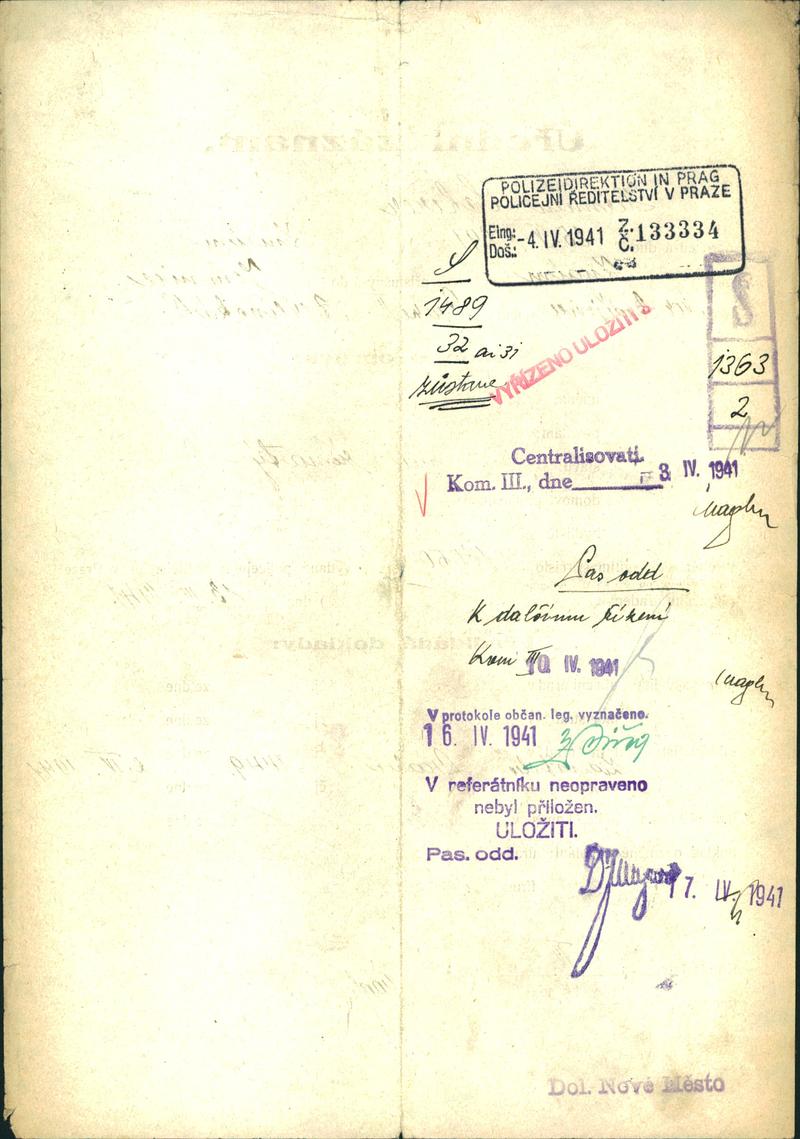 POLIZEIDIREKTION IN PRAG
POLICEJNÍ ŘEDITELSTVÍ V PRAZE
Eing.:
Doš.: -4. IV. 1941 Z. Č. 133334
S
1489
32 ai 31
zůstane
VYŘÍZENO ULOŽITI S
S
1363
2
Centralisovati.
Kom. III., dne 3 IV. 1941
Pas odd
K dalšímu řízení
Kom III
10. IV. 1941
V protokole občan. leg. vyznačeno.
16. IV. 1941
V referátníku neopraveno
nebyl přiložen.
ULOŽITI.
Pas. odd.
17. IV. 1941
Dol. Nové Město